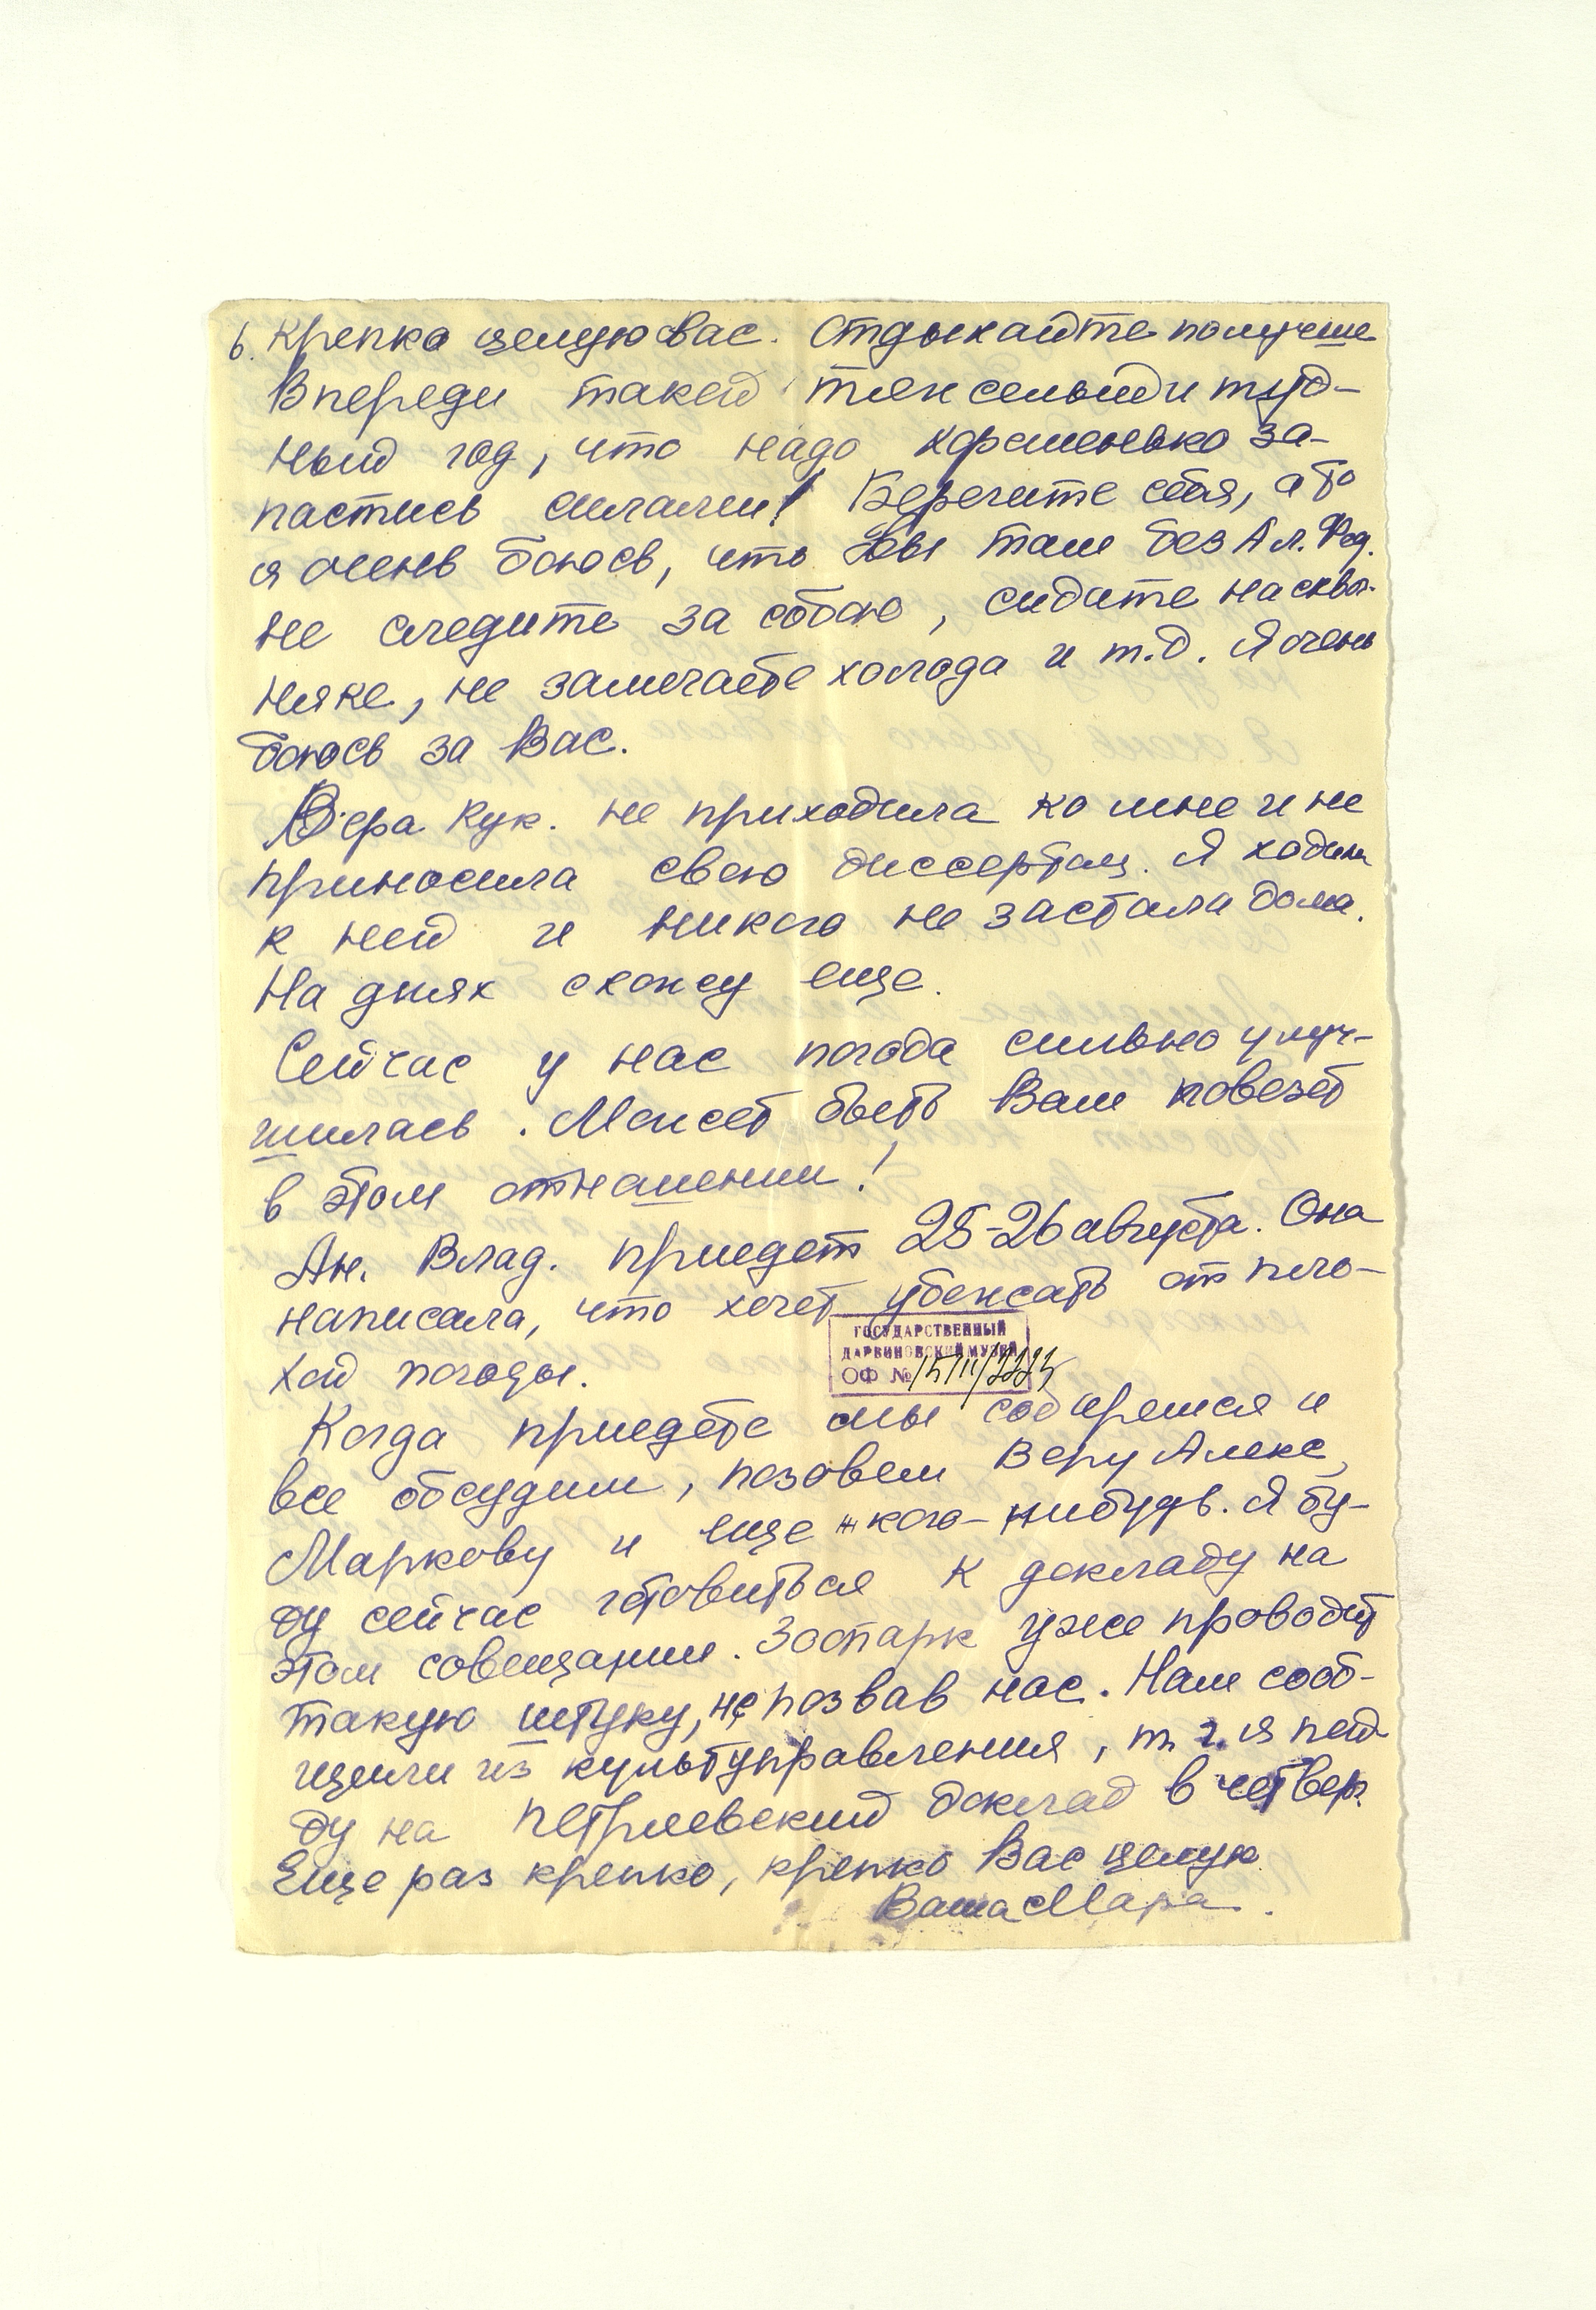 6. Крепко целую Вас. Отдыхайте получше
Впереди такой тяжелый и труд-
ный год, что надо хорошенько за-
пастись силами! Берегите себя, а то
я очень боюсь, что Вы там без Ал. Фед.
не следите за собою, сидите на сквоз-
няке, не замечаете холода и т.д. Я очень
боюсь за Вас.
Вера Кук. не приходила ко мне и не
приносила свою диссертац. Я ходила
к ней и никого не застала дома.
На днях схожу еще.
Сейчас у нас погода сильно улуч-
шилась. Может быть Вам повезет
в этом отношении!
Ан. Влад. приедет 25-26 августа. Она
написала, что хочет убежать от пло-
хой погоды.
ГОСУДАРСТВЕННЫЙ
ДАРВИНОВСКИЙ МУЗЕЙ
ОФ №
Когда приедете мы соберемся и
все обсудим, позовем Веру Алекс.
Маркову и еще кого-нибудь. Я бу-
ду сейчас готовиться к докладу на
этом совещании. Зоопарк уже проводит
такую штуку, не позвав нас. Нам сооб-
щили из культуправления, т. ч. я пой-
ду на Петряевский доклад в четверг.
Еще раз крепко, крепко Вас целую
Ваша Мара.